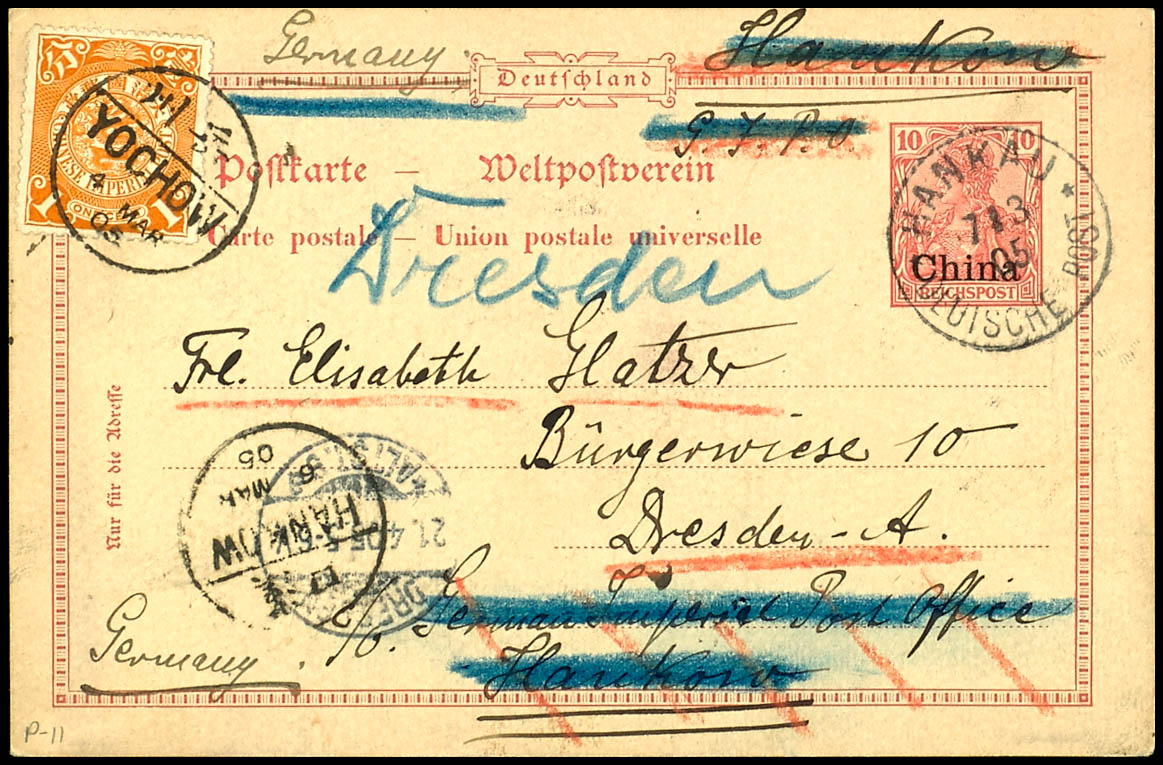 Germany. Hankow
Deutschland
G. I. P. O
Postkarte — Weltpostverein
Carte postale — Union postale universelle
YOCHOW
4
MAR
05
CHINESE IMPERIAL
1 ONE CENT 1
10 10
China
REICHSPOST
HANKAU
7 3
05
DEUTSCHE POST
Dresden
Frl. Elisabeth Glatzer
Bürgerwiese 10
Dresden-A.
Nur für die Adresse
HANKOW
6
MAR
05
21.4.05
c/o. German Imperial Post Office
Hankow
Germany.
P-11